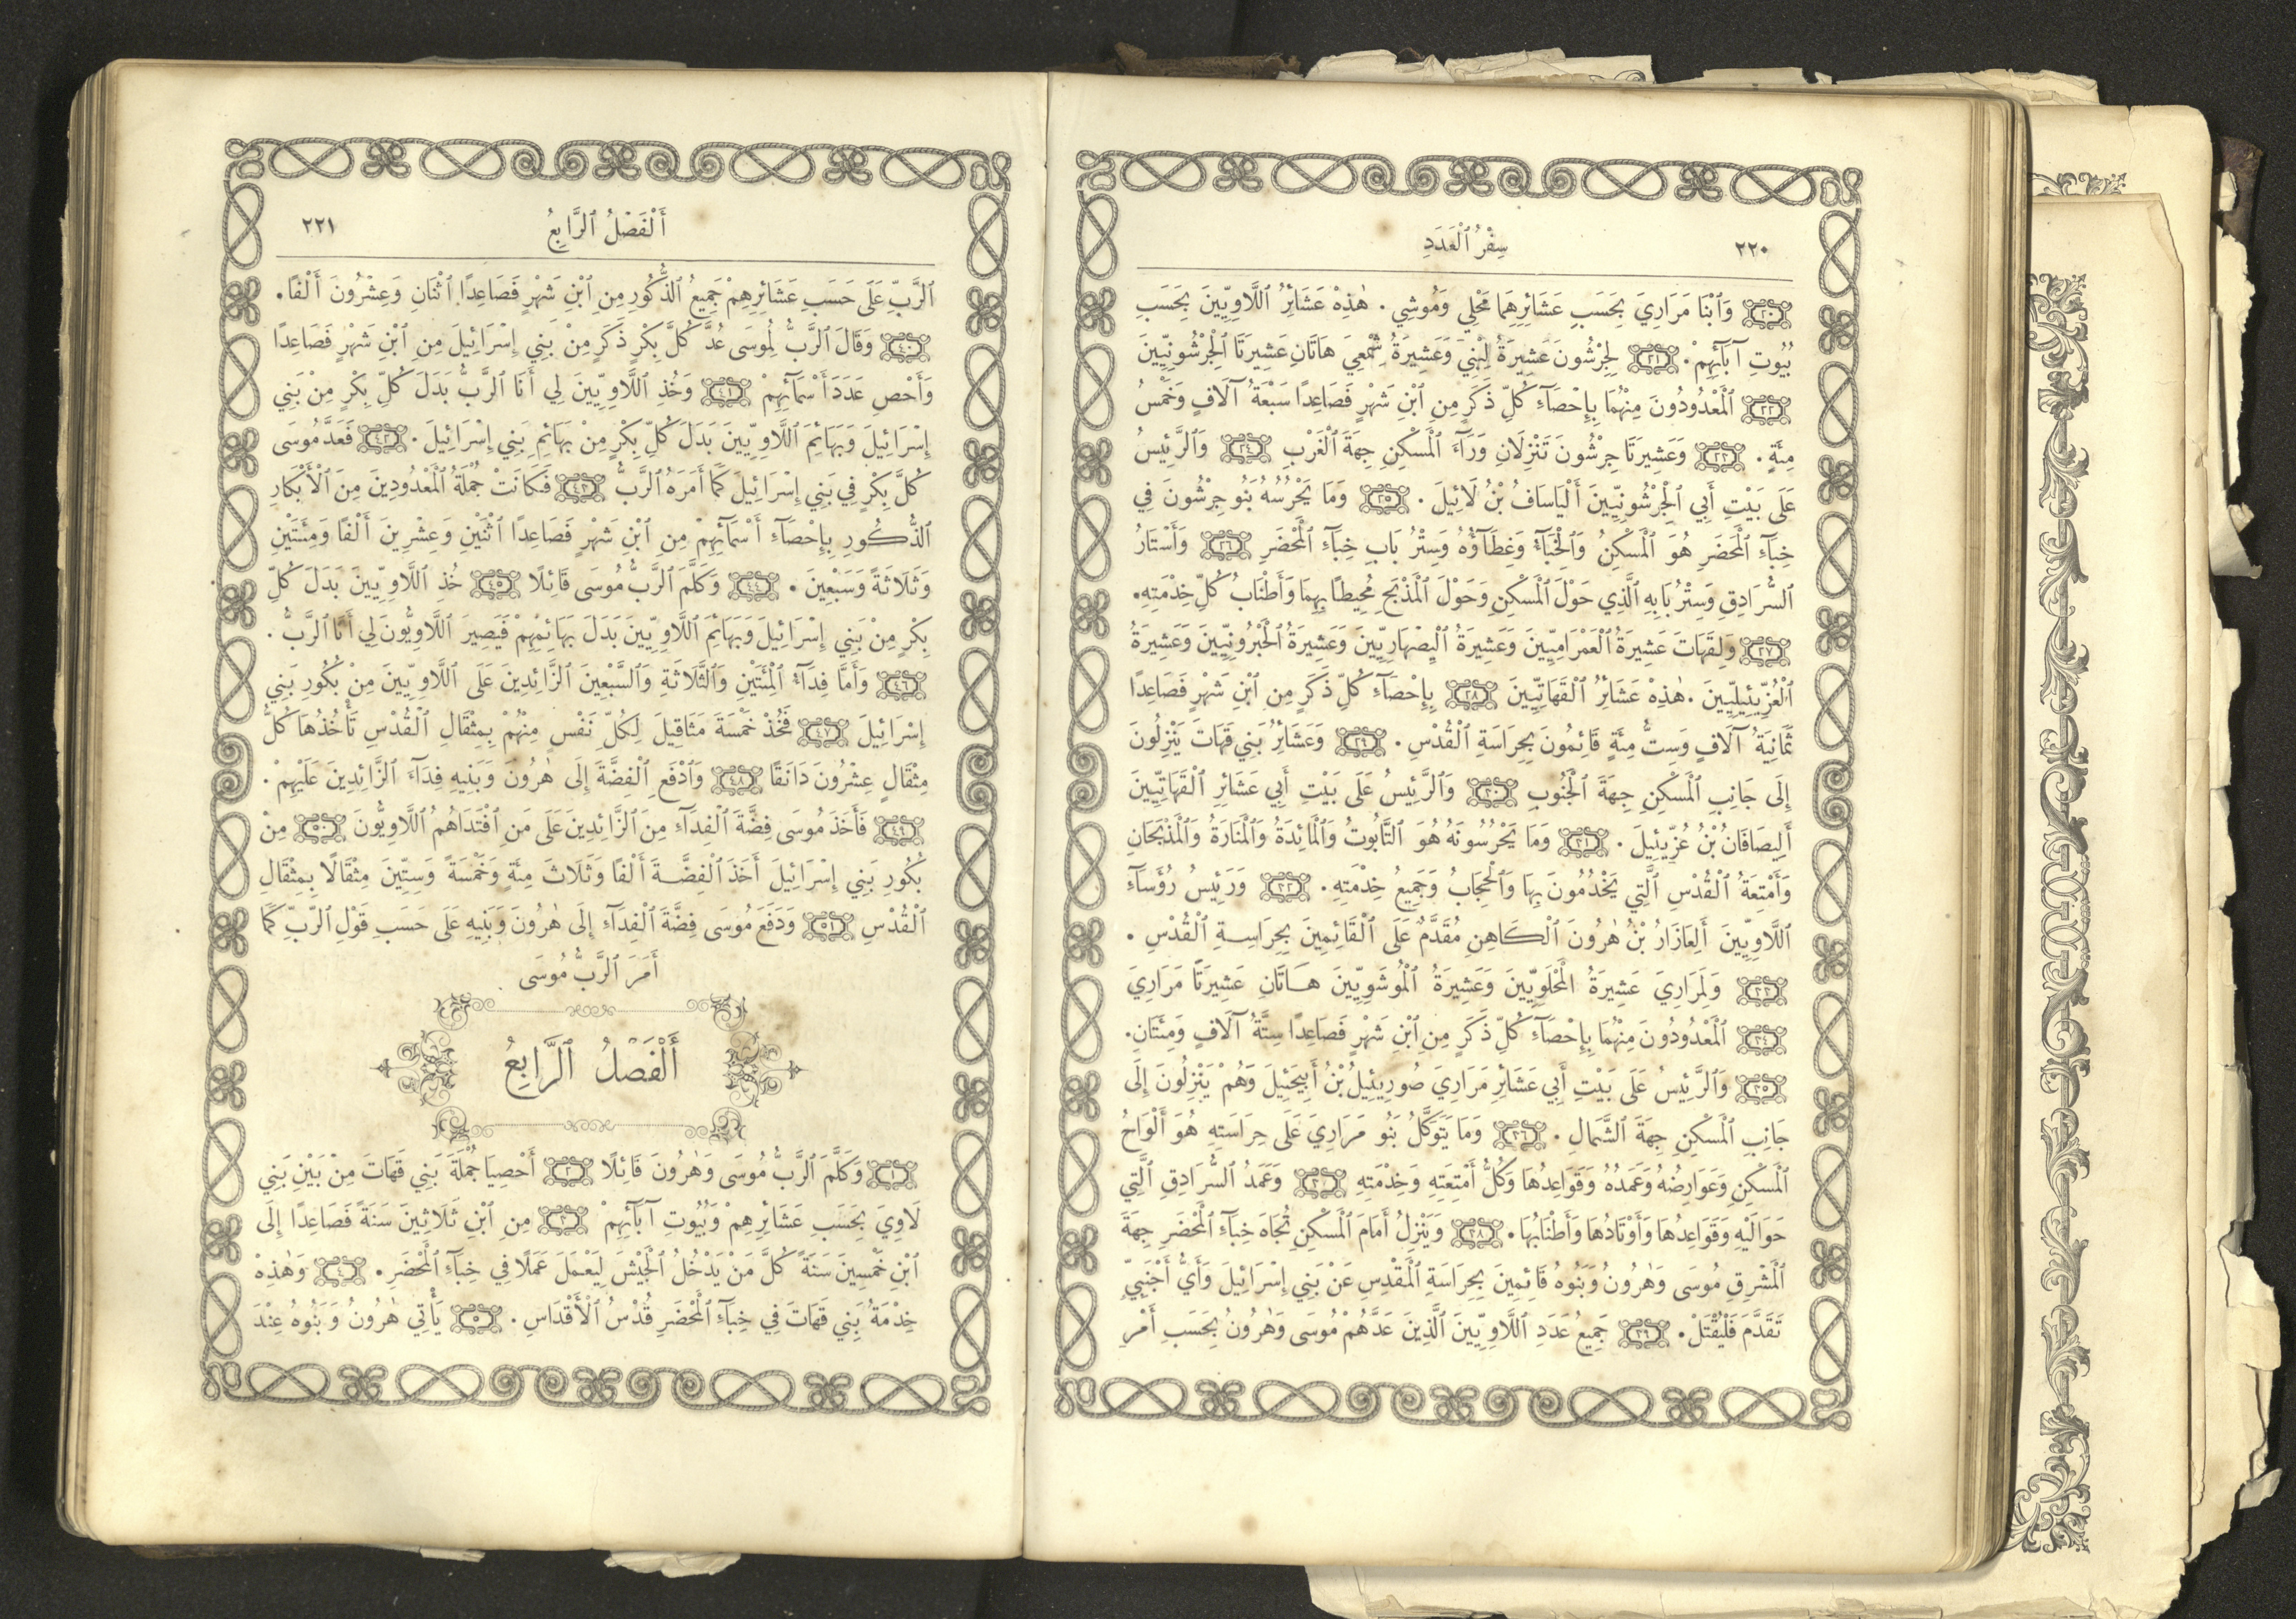 ٢٢٠ سِفْرُ ٱلْعَدَدِ
٢٠ وَٱبْنَا مَرَارِيَ بِحَسَبِ عَشَائِرِهِمَا مَحْلِي وَمُوشِي. هٰذِهْ عَشَائِرُ ٱللَّاوِيِّينَ بِحَسَبِ
بُيُوتِ آبَآئِهِمْ. ٢١ لِجِرْشُونَ عَشِيرَةُ لِبْنِيَ وَعَشِيرَةُ شِمْعِيَ هَاتَانِ عَشِيرَتَا ٱلْجِرْشُونِيِّينَ
٢٢ ٱلْمَعْدُودُونَ مِنْهُمَا بِإِحْصَآءِ كُلِّ ذَكَرٍ مِنِ ٱبْنِ شَهْرٍ فَصَاعِدًا سَبْعَةُ آلَافٍ وَخَمْسُ
مِئَةٍ. ٢٣ وَعَشِيرَتَا جِرْشُونَ تَنْزِلَانِ وَرَآءَ ٱلْمَسْكِنِ جِهَةَ ٱلْغَرْبِ ٢٤ وَٱلرَّئِيسُ
عَلَى بَيْتِ أَبِي ٱلْجِرْشُونِيِّينَ أَلْيَاسَافُ بْنُ لَائِيلَ. ٢٥ وَمَا يَحْرُسُهُ بَنُو جِرْشُونَ فِي
خِبَآءِ ٱلْمَحْضَرِ هُوَ ٱلْمَسْكِنُ وَٱلْخِبَآءُ وَغِطَآؤُهُ وَسِتْرُ بَابِ خِبَآءِ ٱلْمَحْضَرِ ٢٦ وَأَسْتَارُ
ٱلسُّرَادِقِ وَسِتْرُ بَابِهِ ٱلَّذِي حَوْلَ ٱلْمَسْكِنِ وَحَوْلَ ٱلْمَذْبَحِ مُحِيطًا بِهِمَا وَأَطْنَابُ كُلِّ خِدْمَتِهِ.
٢٧ وَلِقَهَاتَ عَشِيرَةُ ٱلْعَمْرَامِيِّينَ وَعَشِيرَةُ ٱلْيِصْهَارِيِّينَ وَعَشِيرَةُ ٱلْحَبْرُونِيِّينَ وَعَشِيرَةُ
ٱلْعُزِّيئِيلِيِّينَ. هٰذِهْ عَشَائِرُ ٱلْقَهَاتِيِّينَ ٢٨ بِإِحْصَآءِ كُلِّ ذَكَرٍ مِنِ ٱبْنِ شَهْرٍ فَصَاعِدًا
ثَمَانِيَةُ آلَافٍ وَسِتُّ مِئَةٍ قَائِمُونَ بِحِرَاسَةِ ٱلْقُدْسِ. ٢٩ وَعَشَائِرُ بَنِي قَهَاتَ يَنْزِلُونَ
إِلَى جَانِبِ ٱلْمَسْكِنِ جِهَةَ ٱلْجَنُوبِ ٣٠ وَٱلرَّئِيسُ عَلَى بَيْتِ أَبِي عَشَائِرِ ٱلْقَهَاتِيِّينَ
أَلِيصَافَانُ بْنُ عُزِّيئِيلَ. ٣١ وَمَا يَحْرُسُونَهُ هُوَ ٱلتَّابُوتُ وَٱلْمَائِدَةُ وَٱلْمَنَارَةُ وَٱلْمَذْبَحَانِ
وَأَمْتِعَةُ ٱلْقُدْسِ ٱلَّتِي يَخْدُمُونَ بِهَا وَٱلْحِجَابُ وَجَمِيعُ خِدْمَتِهِ. ٣٢ وَرَئِيسُ رُؤَسَآءِ
ٱللَّاوِيِّينَ أَلِعَازَارُ بْنُ هٰرُونَ ٱلْكَاهِنِ مُقَدَّمٌ عَلَى ٱلْقَائِمِينَ بِحِرَاسَةِ ٱلْقُدْسِ.
٣٣ وَلِمَرَارِيَ عَشِيرَةُ ٱلْمَحْلَوِيِّينَ وَعَشِيرَةُ ٱلْمُوشَوِيِّينَ هَاتَانِ عَشِيرَتَا مَرَارِيَ
٣٤ ٱلْمَعْدُودُونَ مِنْهُمَا بِإِحْصَآءِ كُلِّ ذَكَرٍ مِنِ ٱبْنِ شَهْرٍ فَصَاعِدًا سِتَّةُ آلَافٍ وَمِئَتَانِ.
٣٥ وَٱلرَّئِيسُ عَلَى بَيْتِ أَبِي عَشَائِرِ مَرَارِيَ صُورِيئِيلُ بْنُ أَبِيحَئِيلَ وَهُمْ يَنْزِلُونَ إِلَى
جَانِبِ ٱلْمَسْكِنِ جِهَةَ ٱلشَّمَالِ. ٣٦ وَمَا يَتَوَكَّلُ بَنُو مَرَارِيَ عَلَى حِرَاسَتِهِ هُوَ أَلْوَاحُ
ٱلْمَسْكِنِ وَعَوَارِضُهُ وَعَمَدُهُ وَقَوَاعِدُهَا وَكُلُّ أَمْتِعَتِهِ وَخِدْمَتِهِ ٣٧ وَعَمَدُ ٱلسُّرَادِقِ ٱلَّتِي
حَوَالَيْهِ وَقَوَاعِدُهَا وَأَوْتَادُهَا وَأَطْنَابُهَا. ٣٨ وَيَنْزِلُ أَمَامَ ٱلْمَسْكِنِ تُجَاهَ خِبَآءِ ٱلْمَحْضَرِ جِهَةَ
ٱلْمَشْرِقِ مُوسَى وَهٰرُونُ وَبَنُوهُ قَائِمِينَ بِحِرَاسَةِ ٱلْمَقْدِسِ عَنْ بَنِي إِسْرَائِيلَ وَأَيُّ أَجْنَبِيٍّ
تَقَدَّمَ فَلْيُقْتَلْ. ٣٩ جَمِيعُ عَدَدِ ٱللَّاوِيِّينَ ٱلَّذِينَ عَدَّهُمْ مُوسَى وَهٰرُونُ بِحَسَبِ أَمْرِ
أَلْفَصْلُ ٱلرَّابِعُ ٢٢١
ٱلرَّبِّ عَلَى حَسَبِ عَشَائِرِهِمْ جَمِيعُ ٱلذُّكُورِ مِنِ ٱبْنِ شَهْرٍ فَصَاعِدًا ٱثْنَانِ وَعِشْرُونَ أَلْفًا.
٤٠ وَقَالَ ٱلرَّبُّ لِمُوسَى عُدَّ كُلَّ بِكْرٍ ذَكَرٍ مِنْ بَنِي إِسْرَائِيلَ مِنِ ٱبْنِ شَهْرٍ فَصَاعِدًا
وَأَحْصِ عَدَدَ أَسْمَآئِهِمْ ٤١ وَخُذِ ٱللَّاوِيِّينَ لِي أَنَا ٱلرَّبُّ بَدَلَ كُلِّ بِكْرٍ مِنْ بَنِي
إِسْرَائِيلَ وَبَهَائِمَ ٱللَّاوِيِّينَ بَدَلَ كُلِّ بِكْرٍ مِنْ بَهَائِمِ بَنِي إِسْرَائِيلَ. ٤٢ فَعَدَّ مُوسَى
كُلَّ بِكْرٍ فِي بَنِي إِسْرَائِيلَ كَمَا أَمَرَهُ ٱلرَّبُّ ٤٣ فَكَانَتْ جُمْلَةُ ٱلْمَعْدُودِينَ مِنَ ٱلْأَبْكَارِ
ٱلذُّكُورِ بِإِحْصَآءِ أَسْمَآئِهِمْ مِنِ ٱبْنِ شَهْرٍ فَصَاعِدًا ٱثْنَيْنِ وَعِشْرِينَ أَلْفًا وَمِئَتَيْنِ
وَثَلَاثَةً وَسَبْعِينَ. ٤٤ وَكَلَّمَ ٱلرَّبُّ مُوسَى قَائِلًا ٤٥ خُذِ ٱللَّاوِيِّينَ بَدَلَ كُلِّ
بِكْرٍ مِنْ بَنِي إِسْرَائِيلَ وَبَهَائِمَ ٱللَّاوِيِّينَ بَدَلَ بَهَائِمِهِمْ فَيَصِيرَ ٱللَّاوِيُّونَ لِي أَنَا ٱلرَّبُّ.
٤٦ وَأَمَّا فِدَآءُ ٱلْمِئَتَيْنِ وَٱلثَّلَاثَةِ وَٱلسَّبْعِينَ ٱلزَّائِدِينَ عَلَى ٱللَّاوِيِّينَ مِنْ بُكُورِ بَنِي
إِسْرَائِيلَ ٤٧ فَخُذْ خَمْسَةَ مَثَاقِيلَ لِكُلِّ نَفْسٍ مِنْهُمْ بِمِثْقَالِ ٱلْقُدْسِ تَأْخُذُهَا كُلُّ
مِثْقَالٍ عِشْرُونَ دَانَقًا ٤٨ وَٱدْفَعِ ٱلْفِضَّةَ إِلَى هٰرُونَ وَبَنِيهِ فِدَآءَ ٱلزَّائِدِينَ عَلَيْهِمْ.
٤٩ فَأَخَذَ مُوسَى فِضَّةَ ٱلْفِدَآءِ مِنَ ٱلزَّائِدِينَ عَلَى مَنِ ٱفْتَدَاهُمُ ٱللَّاوِيُّونَ ٥٠ مِنْ
بُكُورِ بَنِي إِسْرَائِيلَ أَخَذَ ٱلْفِضَّةَ أَلْفًا وَثَلَاثَ مِئَةٍ وَخَمْسَةً وَسِتِّينَ مِثْقَالًا بِمِثْقَالِ
ٱلْقُدْسِ ٥١ وَدَفَعَ مُوسَى فِضَّةَ ٱلْفِدَآءِ إِلَى هٰرُونَ وَبَنِيهِ عَلَى حَسَبِ قَوْلِ ٱلرَّبِّ كَمَا
أَمَرَ ٱلرَّبُّ مُوسَى
أَلْفَصْلُ ٱلرَّابِعُ
١ وَكَلَّمَ ٱلرَّبُّ مُوسَى وَهٰرُونَ قَائِلًا ٢ أَحْصِيَا جُمْلَةَ بَنِي قَهَاتَ مِنْ بَيْنِ بَنِي
لَاوِيَ بِحَسَبِ عَشَائِرِهِمْ وَبُيُوتِ آبَآئِهِمْ ٣ مِنِ ٱبْنِ ثَلَاثِينَ سَنَةً فَصَاعِدًا إِلَى
ٱبْنِ خَمْسِينَ سَنَةً كُلَّ مَنْ يَدْخُلُ ٱلْجَيْشَ لِيَعْمَلَ عَمَلًا فِي خِبَآءِ ٱلْمَحْضَرِ. ٤ وَهٰذِهْ
خِدْمَةُ بَنِي قَهَاتَ فِي خِبَآءِ ٱلْمَحْضَرِ قُدْسُ ٱلْأَقْدَاسِ. ٥ يَأْتِي هٰرُونُ وَبَنُوهُ عِنْدَ